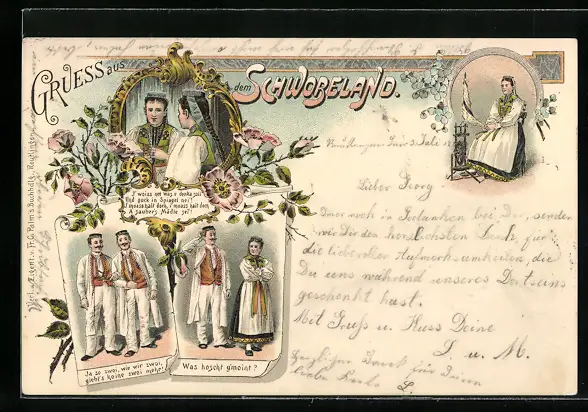 GRUESS aus
dem SCHWOBELAND.
J' woiss net was i denka soll
Und guck in Spiagel nei!
J' muass halt doch, i muass halt doch
A saubers Mädle sei!
Ja so zwoi, wie wir zwoi,
giebt's koine zwoi mehr!
Was hoscht g'moint?
Verl. u. Eigent. v. Fr. G. Palm's Buchhdlg., Reutlingen.
Lieber Georg.
in Gedanken bei Dir, senden
wir Dir den herzlichsten Dank für
die liebevollen Aufmerksamkeiten, die
Du uns während unseres Dortseins
geschenkt hast.
Mit Gruss u. Kuss Deine
u. M.
Herzlichen Dank für Deine
liebe Karte